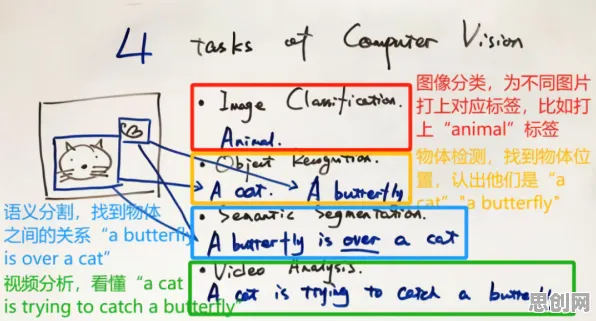 4 tasks of Computer Vision
• Image Classification.
Animal.
• Object Recognition.
A cat. A butterfly
• Semantic Segmentation.
A butterfly is over a cat
• Video Analysis.
A cat is trying to catch a butterfly
图像分类，为不同图片
打上对应标签，比如打
上“animal”标签
物体检测，找到物体位
置，认出他们是“a
cat”"a butterfly"
语义分割，找到物体
之间的关系“a butterfly
is over a cat”
视频分析，看懂“a cat
is trying to catch a butterfly”
思创网